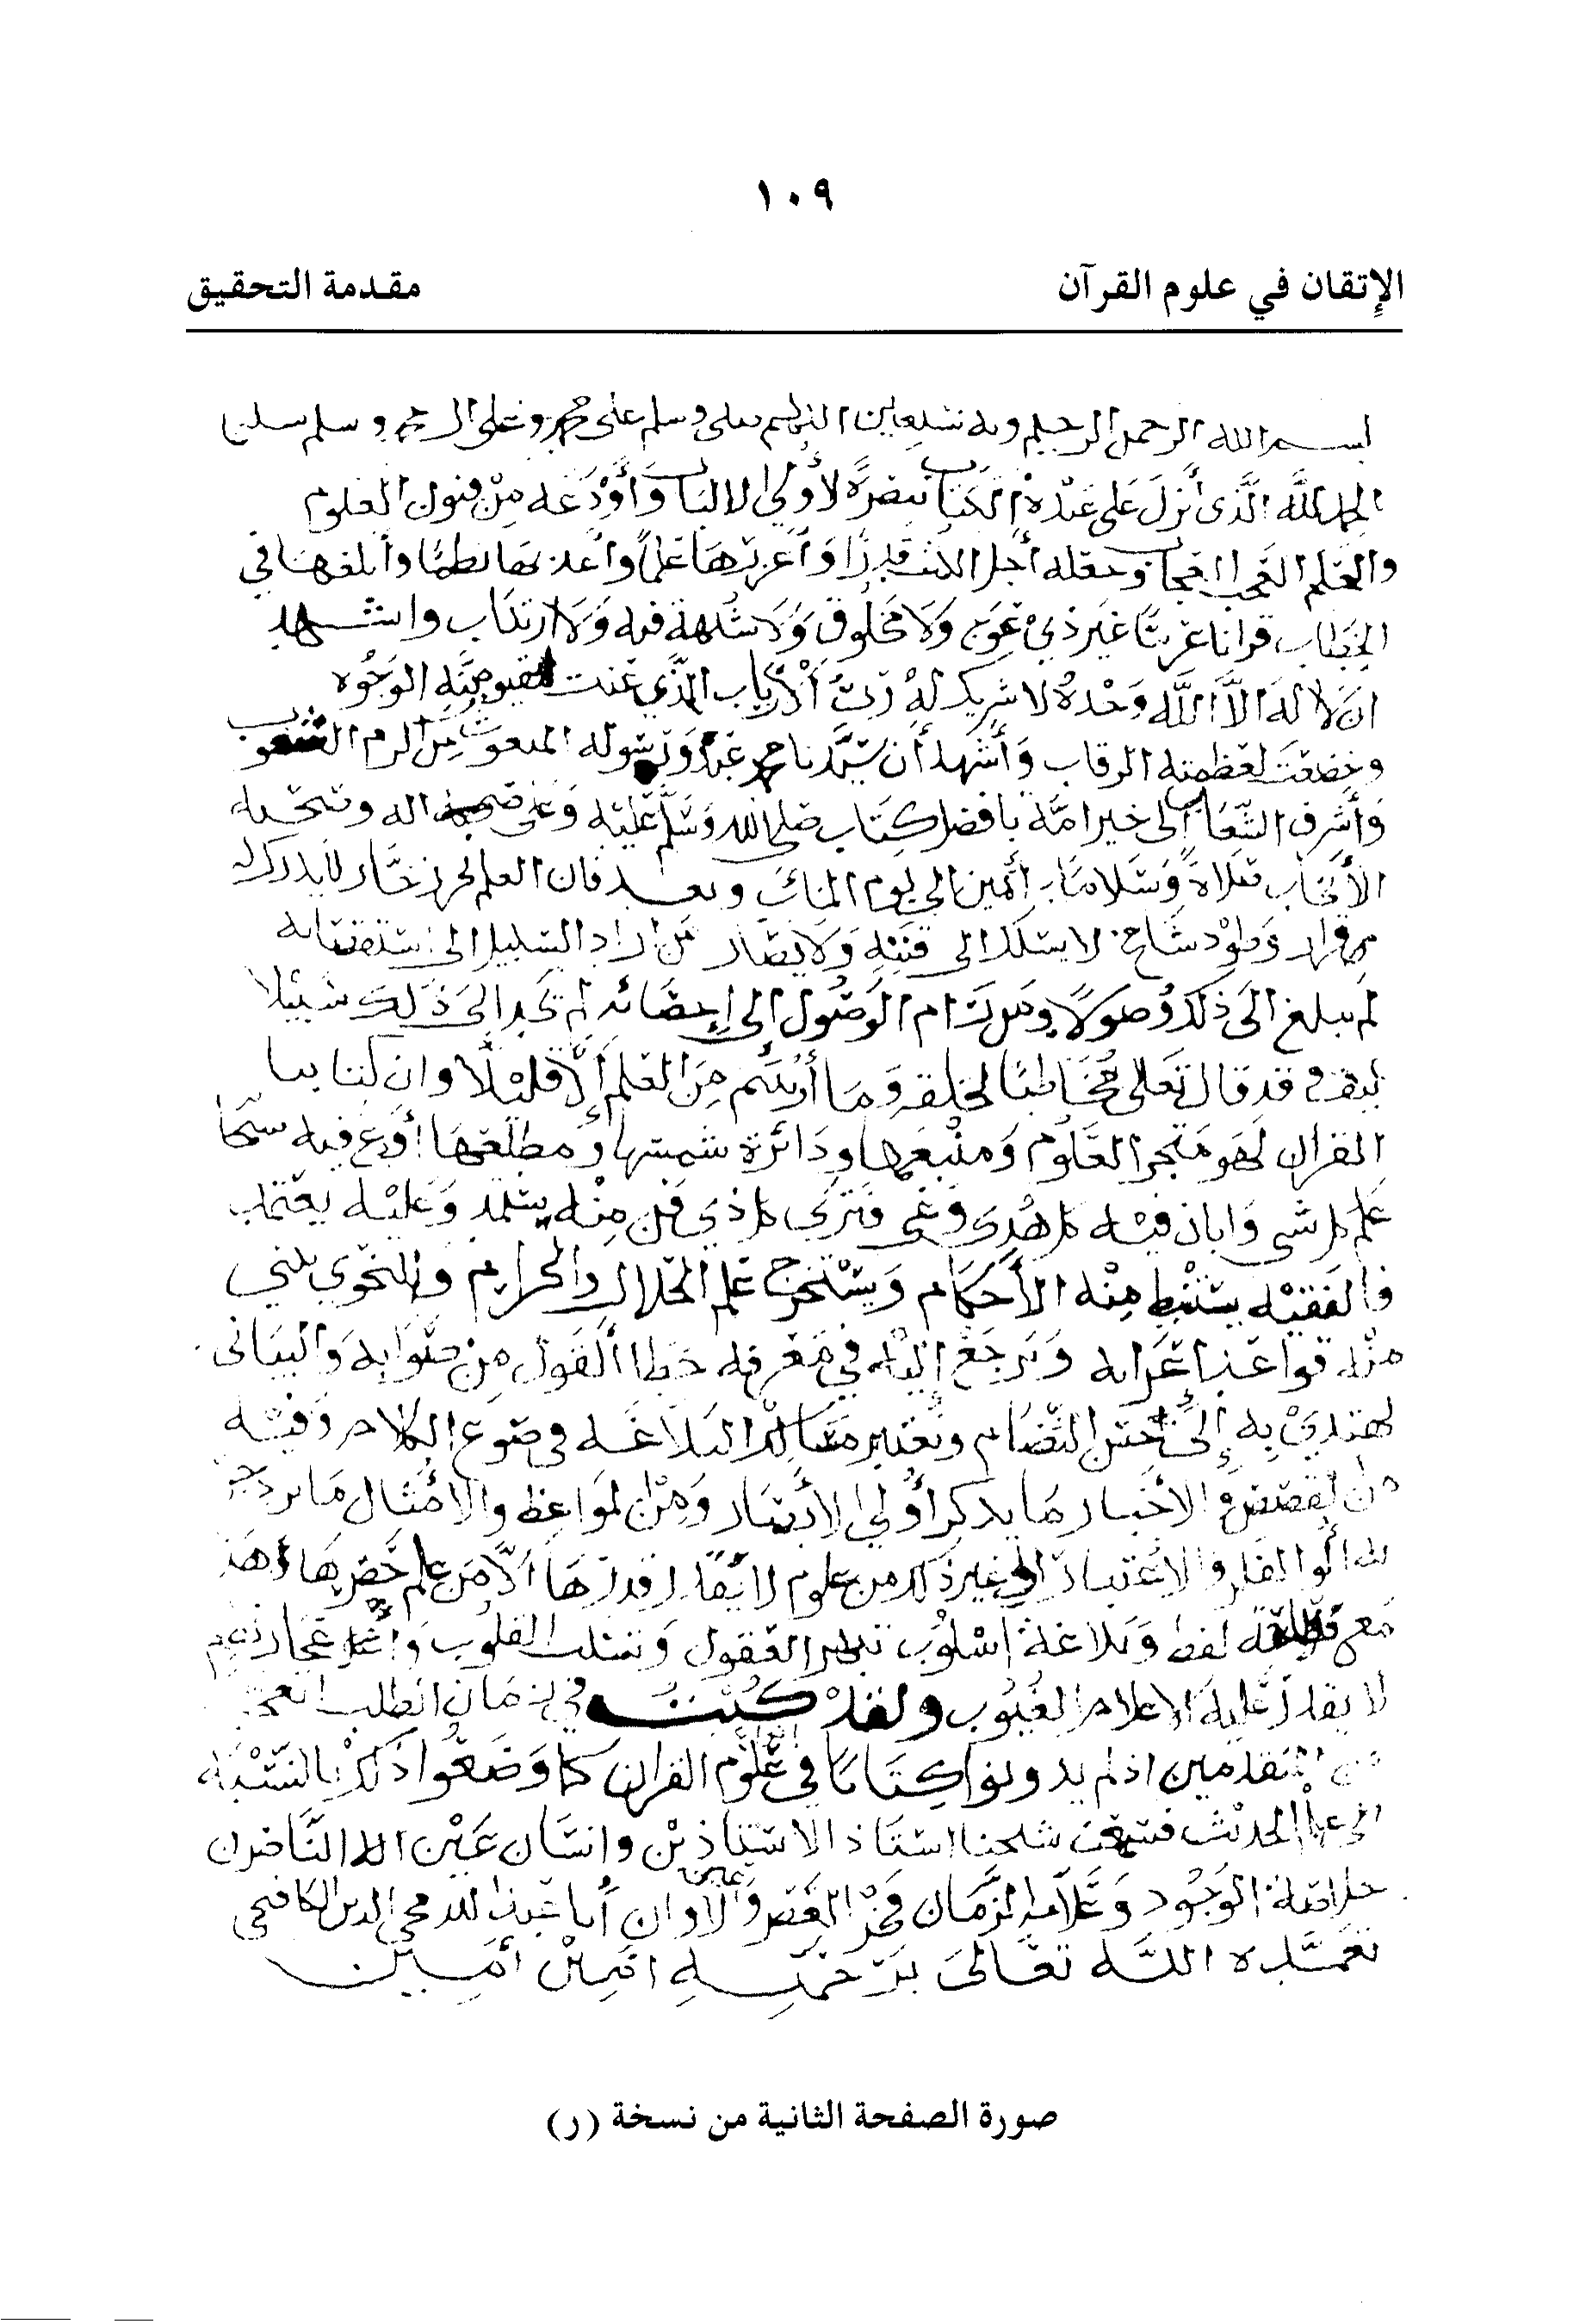 ١٠٩
الإتقان في علوم القرآن
مقدمة التحقيق
بسم الله الرحمن الرحيم وبه نستعين اللهم صلى وسلم على محمد وعلى ال محمد وسلم
الحمد لله الَّذى أنزلَ عَلى عَبْدهْ الكتاب تبصرةً لأُولى الالباب وَأوْدَعَه مِنْ فنون العلوم
والحكم العجب العجاب وجعله أجل الكتب قدرًا وَأغزرهَا عَلمًا وأعذبها نظمًا وأبلغها في
الخطاب قرانا عَربيًا غيَر ذيْ عِوَج وَلَا مخلُوق وَلَا شبهة فيه وَلَا ارتياب واشهد
انَ لا الهَ الاَّ اللَّه وَحْدهُ لا شريك لهُ رَبُّ الأرْباب الَّذي عَنت لقيوميَّته الوجُوه
وخضعَت لعَظمته الرقاب وَأشهد أن سَيّدنا محمد عَبده وَرَسُوله المبعوث مِن اكرم الشعوب
وَأشرف الشّعَاب الى خير امَّة بافضل كِتَاب صلى الله وَسَلّم عَليْه وَعَلى اله وصحبه
الأنجَاب صَلاةً وَسَلامًا دائمين الى يوم المآب وبعد فان العلم بحر زخَّار لا يدرك له
من قرار وَطوْد شامخ لا يسلك الى قنته وَلا يصَار مَن اراد السبيل الى استقصائه
لَم يبلغ الَى ذلكَ وُصُولًا ومن رَام الوصُول الى إحصَائه لم يَجد الىَ ذَلك سَبيلا
كيف وقد قال تَعالى مُخَاطبًا لخلقه وَمَا أوتيتُم مِنَ العلم إلَّا قليْلًا وان كتابنا
القران لهو مَفجر العُلوم وَمنْبَعها ودَائرة شمسها وَمطلَعهَا أوْدع فيه سبحَانه
عِلم كل شى وَابان فيْه كل هُدى وَغى فَترَى كل ذي فَن مِنْه يستمد وَعَليْه يعتمد
فالفقيْه يستنْبط مِنْه الأحكَام وَيسْتخرج علم الحَلال والحرام والنحْوي يبني
منْه قواعدَ اعرَابه وَيَرجعُ اليْه في مَعْرفه خطا القَول مِن صَوَابه وَالبيَانى
يهتديْ بِه إلى حُسْن النظَام وَيعتبر مسَالك البَلاغَه في صَوغ الكلام وَفيْه
من القصَص والأخبار مَا يذكر أُولي الأبْصَار وَمِنْ المواعظ والامثال مَا يزدجر
به أُولوا الفكر وَالاعْتبار الى غير ذلك من علوم لا يُقَدر قدرهَا الَّا مَن علم حَصرهَا هذَا
مَع فصاحَة لفظ وَبلاغة اسْلُوب تبهر العقول وَتسلب القلُوب وَاعجاز نظم
لا يقدر عَليه الا علام الغيُوب ولقدْ كُنتُ في زمان الطلب اتعجب
من المتقدمين اذ لم يدونوا كِتَابًا في عُلوم القران كما وَضعُوا ذلكَ بالنسْبَة
الى علم الحدْيث فسَمعت شيخنا استَاذ الاستاذيْن وانسَان عَيْن النَّاضرين
خلاصة الوُجُود وَعَلَّامة الزمَان فَخْر العَصر وَعين الاوان أبا عَبدالله محي الدين الكافيجى
تغمَّده اللَّه تعَالىَ برَحْمَتِهِ امَيْن أمِيْن
صورة الصفحة الثانية من نسخة (ر)